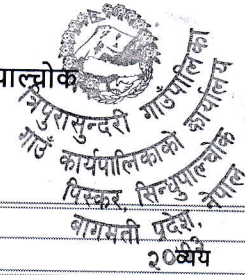 पाल्चोक
त्रिपुरासुन्दरी गाउँपालिका
गाउँ कार्यपालिकाको कार्यालय
पिस्कर, सिन्धुपाल्चोक
बागमती प्रदेश, नेपाल
व्यय